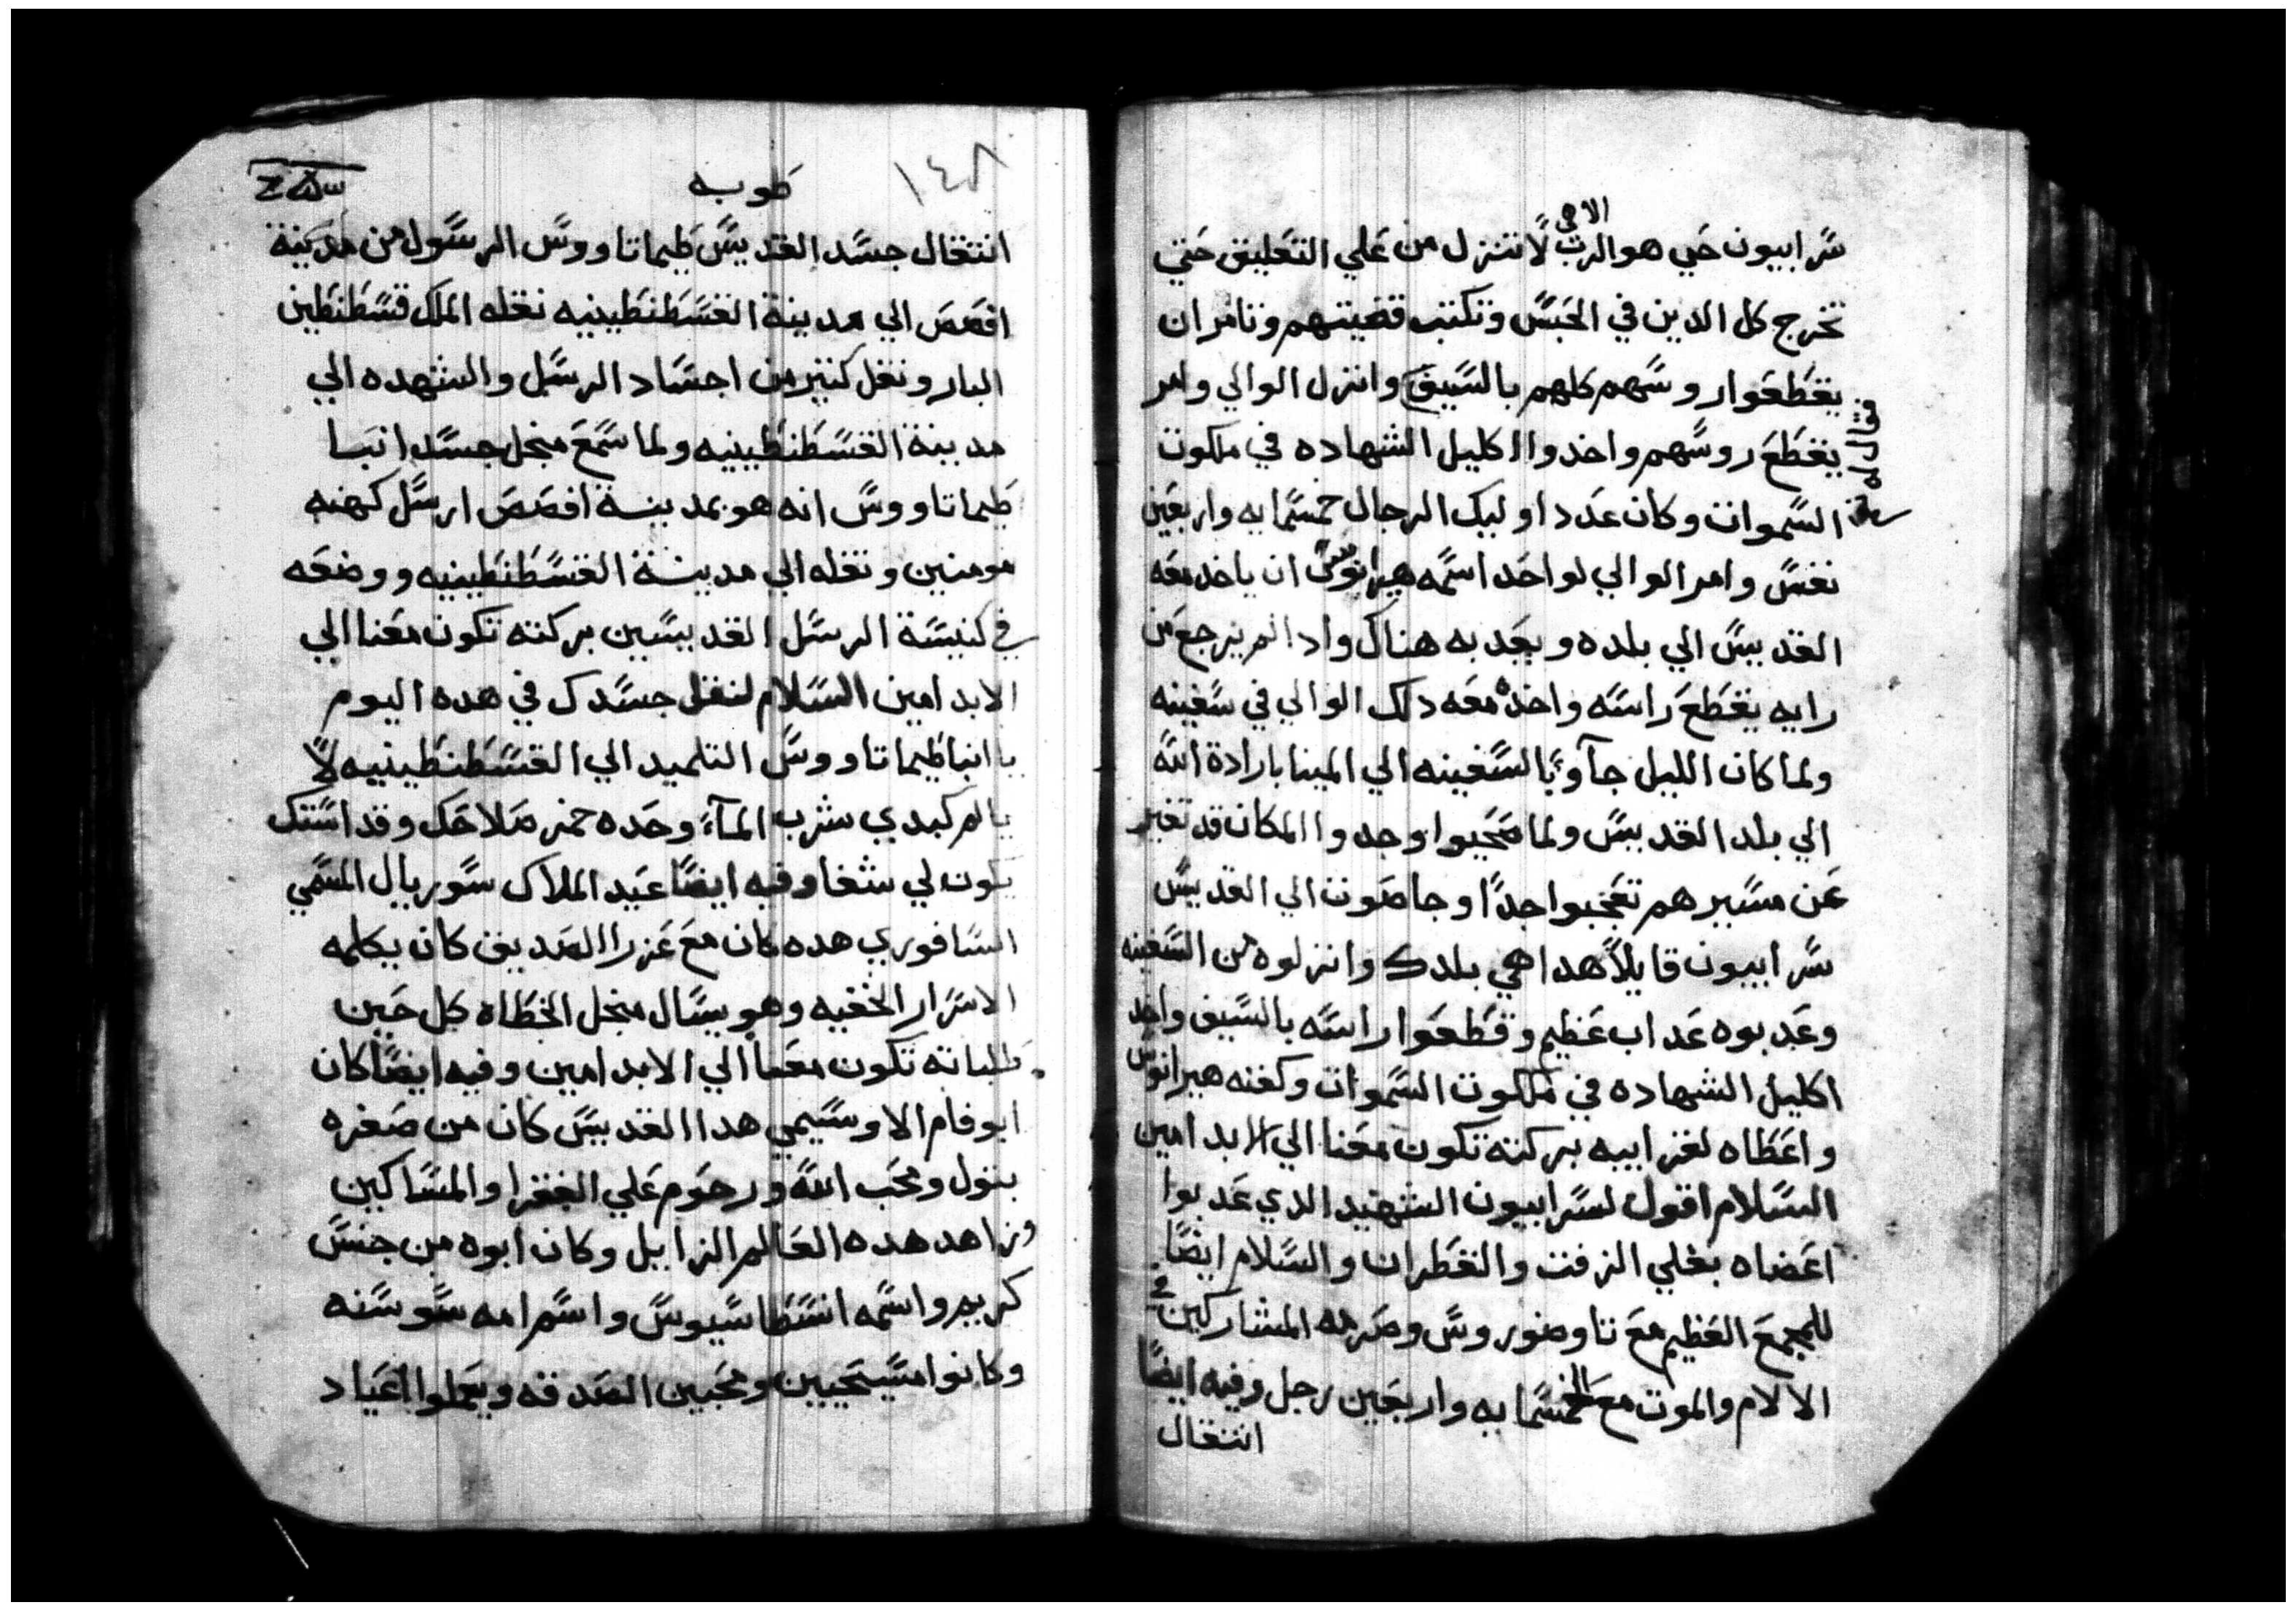 الاهي
سرابيون حي هو الرب لا تنزل من علي التعليق حتي
تخرج كل الدين في الحبس وتكتب قضيتهم وتامر ان
يقطعوا روسهم كلهم بالسيف وانزل الوالي وامر
يقطع روسهم واخدوا اكليل الشهاده في ملكوت
السموات وكان عدد اوليك الرجال خمسمايه واربعين
نفس وامر الوالي لواحد اسمه هيرانوس ان ياخد معه
القديس الي بلده ويعدبه هناك وادا لم يرجع من
رايه يقطع راسه واخده معه دلك الوالي في سفينه
ولما كان الليل جآوا بالسفينه الي المينا بارادة الله
الي بلد القديس ولما صحيوا وجدوا المكان قد تغير
عن مسيرهم تعجبوا جدًا وجا صوت الي القديس
سرابيون قايلاً هدا هي بلدك وانزلوه من السفينه
وعدبوه عداب عظيم وقطعوا راسه بالسيف واخد
اكليل الشهاده في ملكوت السموات وكفنه هيرانوس
واعطاه لقرايبه بركته تكون معنا الي الابد امين
السلام اقول لسرابيون الشهيد الدي عدبوا
اعضاه بغلي الزفت والقطران والسلام ايضًا
للمجمع العظيم مع تاوضوروس وصرمه المشاركين في
الالام والموت مع الخمسمايه واربعين رجل وفيه ايضًا
انتقال
١٤٨
طوبه
انتقال جسد القديس طيماتاووس الرسول من مدينة
افصص الي مدينة القسطنطينيه نقله الملك قسطنطين
البار ونقل كثير من اجساد الرسل والشهده الي
مدينة القسطنطينيه ولما سمع منجل جسد انبا
طيماتاووس انه هو بمدينة افصص ارسل كهنه
مومنين ونقله الي مدينة القسطنطينيه ووضعه
في كنيسة الرسل القديسين بركته تكون معنا الي
الابد امين السلام لنقل جسدك في هده اليوم
يا انبا طيماتاووس التلميد الي القسطنطينيه لا
يالم كبدي شرب المآء وحده خمر صلاحك وقد اسنك
يكون لي شفا وفيه ايضًا عيد الملاك سوريال المسمي
السافوري هده كان مع عزرا الصديق كان يكلمه
الاسرار الخفيه وهو يسال منجل الخطاه كل حين
طلباته تكون معنا الي الابد امين وفيه ايضًا كان
ابو فام الاوسيمي هدا القديس كان من صغره
بتول ومحب الله ورحوم علي الفقرا والمساكين
وزاهد هده العالم الزايل وكان ابوه من جنس
كريم واسمه انسطاسيوس واسم امه سوسنه
وكانوا مسيحيين ومحبين الصدقه ويعملوا اعياد